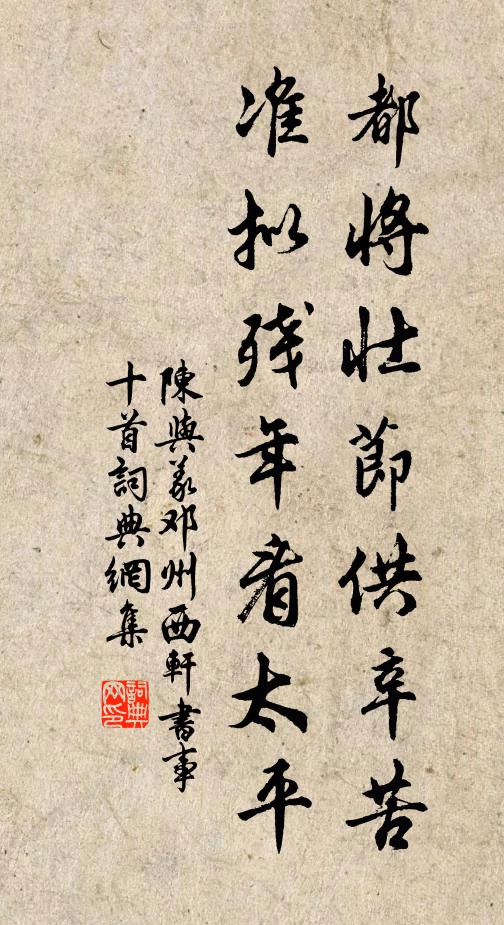 都將壯節供辛苦
准拟殘年看太平
陳與義邓州西軒書事
十首詞典網集
詞典
网印